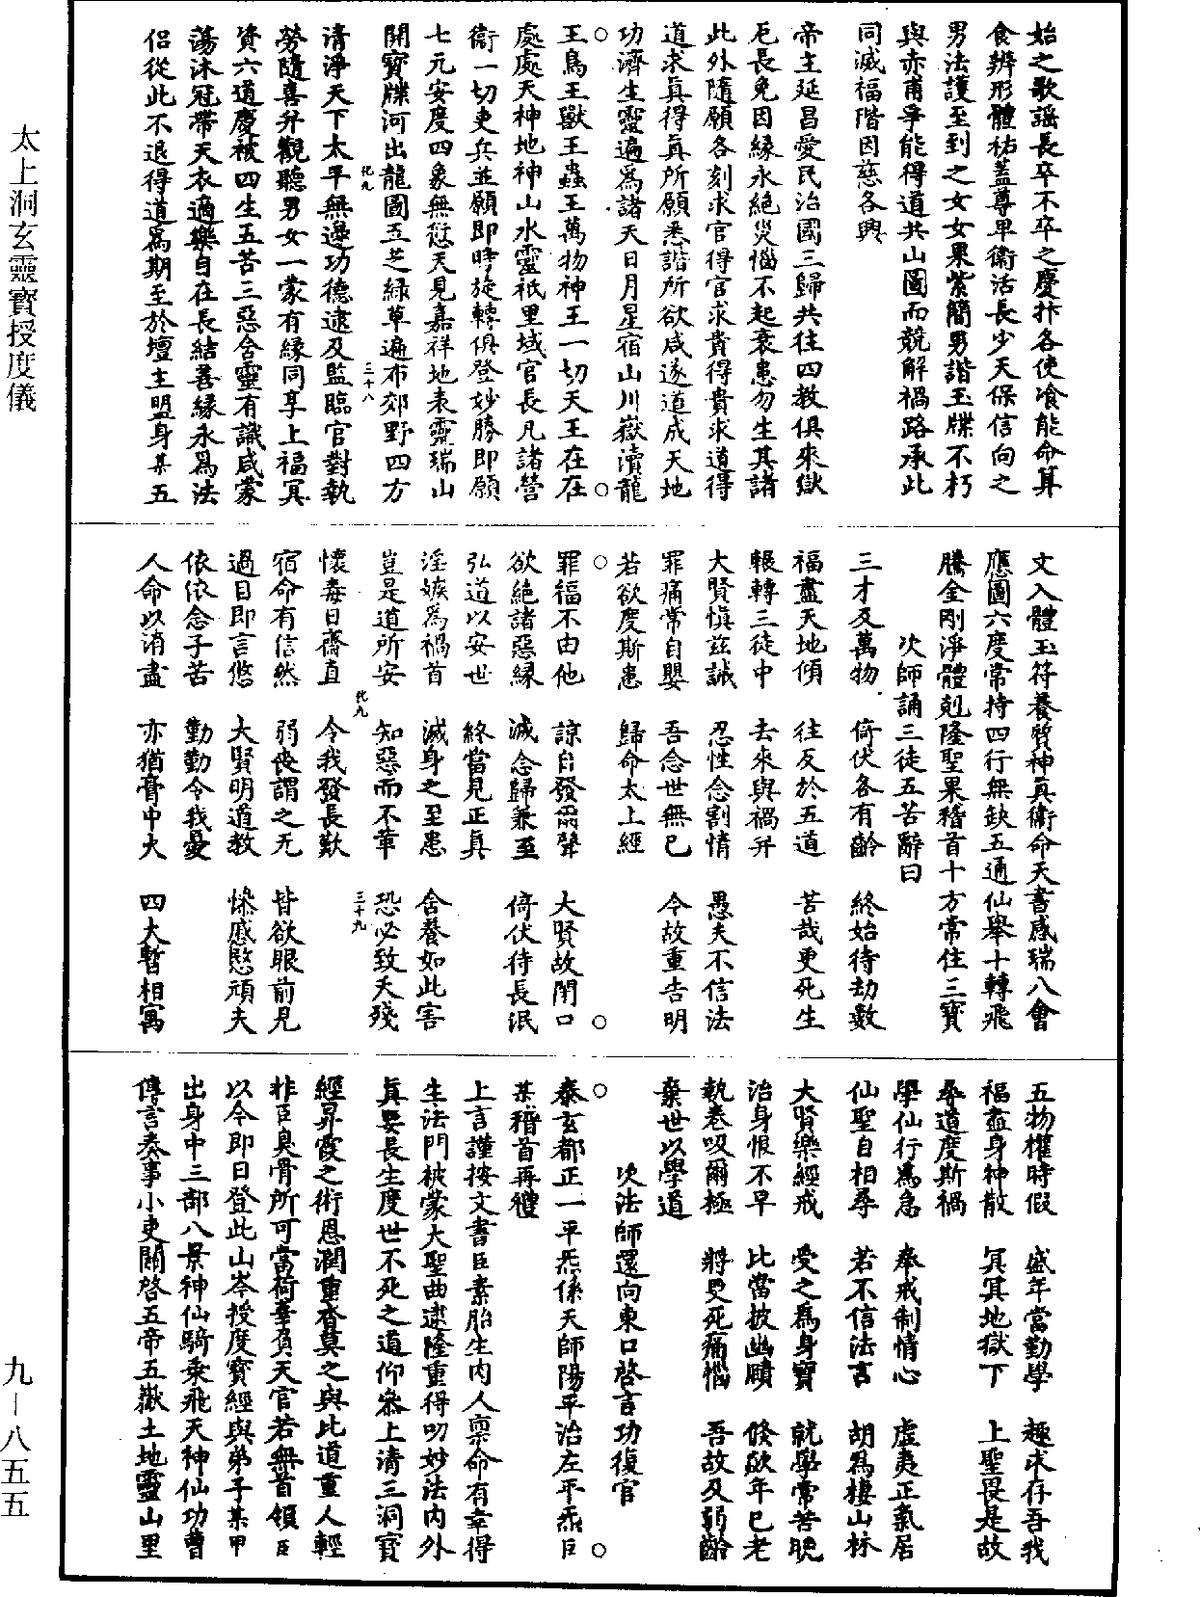 太上洞玄靈寶授度儀
始之歌謡長卒不卒之慶抃各使飡能命算
食辨形體祐蓋尊卑衛活長少天保信向之
男法護至到之女女果紫簡男諧玉牒不朽
與亦甫爭能得道共山圖而競解禍路承此
同滅福階因慈各興
帝主延昌愛民治國三歸共往四教俱來獄
厄長免因緣永絕災惱不起衰患勿生其諸
此外隨願各刻求官得官求貴得貴求道得
道求真得真所願悉諧所欲咸遂道成天地
功濟生靈遍為諸天日月星宿山川嶽瀆龍
王鳥王獸王蟲王萬物神王一切天王在在
處處天神地神山水靈祇里域官長凡諸營
衛一切吏兵並願即時旋轉俱登妙勝即願
七元安度四象無愆天見嘉祥地表靈瑞山
開寶牒河出龍圖五芝綠草遍布郊野四方
清淨天下太平無邊功德逮及監臨官對執
勞隨喜弁觀聽男女一蒙有緣同享上福冥
資六道慶被四生五苦三惡含靈有識咸蒙
蕩沐冠帶天衣適樂自在長結善緣永為法
侶從此不退得道為期至於壇主盟身某五
文入體玉符養質神真衛命天書感瑞八會
應圖六度常持四行無缺五通仙舉十轉飛
騰金剛淨體剋隆聖果稽首十方常住三寶
次師誦三徒五苦辭曰
三才及萬物 倚伏各有齡 終始待劫數
福盡天地傾 往反於五道 苦哉更死生
報轉三徒中 去來與禍弁 愚夫不信法
大賢慎茲誡 忍性念割情 
罪痛常自嬰 吾念世無已 今故重告明
若欲度斯患 歸命太上經
罪福不由他 諒自發爾聲 大賢故閉口
欲絕諸惡緣 滅念歸兼至 倚伏待長泯
弘道以安世 終當見正真
淫嫉為禍首 滅身之至患 含養如此害
豈是道所安 知惡而不革 恐必致夭殘
懷毒日齋直 令我發長歎
宿命有信然 弱喪謂之无 皆欲眼前見
過目即言悠 大賢明道教 慘慼愍頑夫
依依念子苦 勤勤令我憂
人命以消盡 亦猶膏中火 四大暫相寓
五物權時假 盛年當勤學 趣求存吾我
福盡身神散 冥冥地獄下 上聖畏是故
奉道度斯禍
學仙行為急 奉戒制情心 虛夷正氣居
仙聖自相尋 若不信法言 胡為棲山林
大賢樂經戒 受之為身寶 就學常苦晚
治身恨不早 比當披幽賾 倏歘年已老
執卷吸爾極 將更死痛惱 吾故及弱齡
棄世以學道
次法師還向東口啓言功復官
泰玄都正一平炁係天師陽平治左平炁臣
某稽首再禮
上言謹按文書臣素胎生肉人禀命有幸得
生法門被蒙大聖曲逮隆重得叨妙法內外
真要長生度世不死之道仰參上清三洞寶
經昇霞之術恩潤重沓莫之與比道重人輕
非臣臭骨所可當荷幸負天官若無首領臣
以今即日登此山岑授度寶經與弟子某甲
出身中三部八景神仙騎乘飛天神仙功曹
傳言奏事小吏關啓五帝五嶽土地靈山里
化九
三十八
化九
三十九
九—八五五